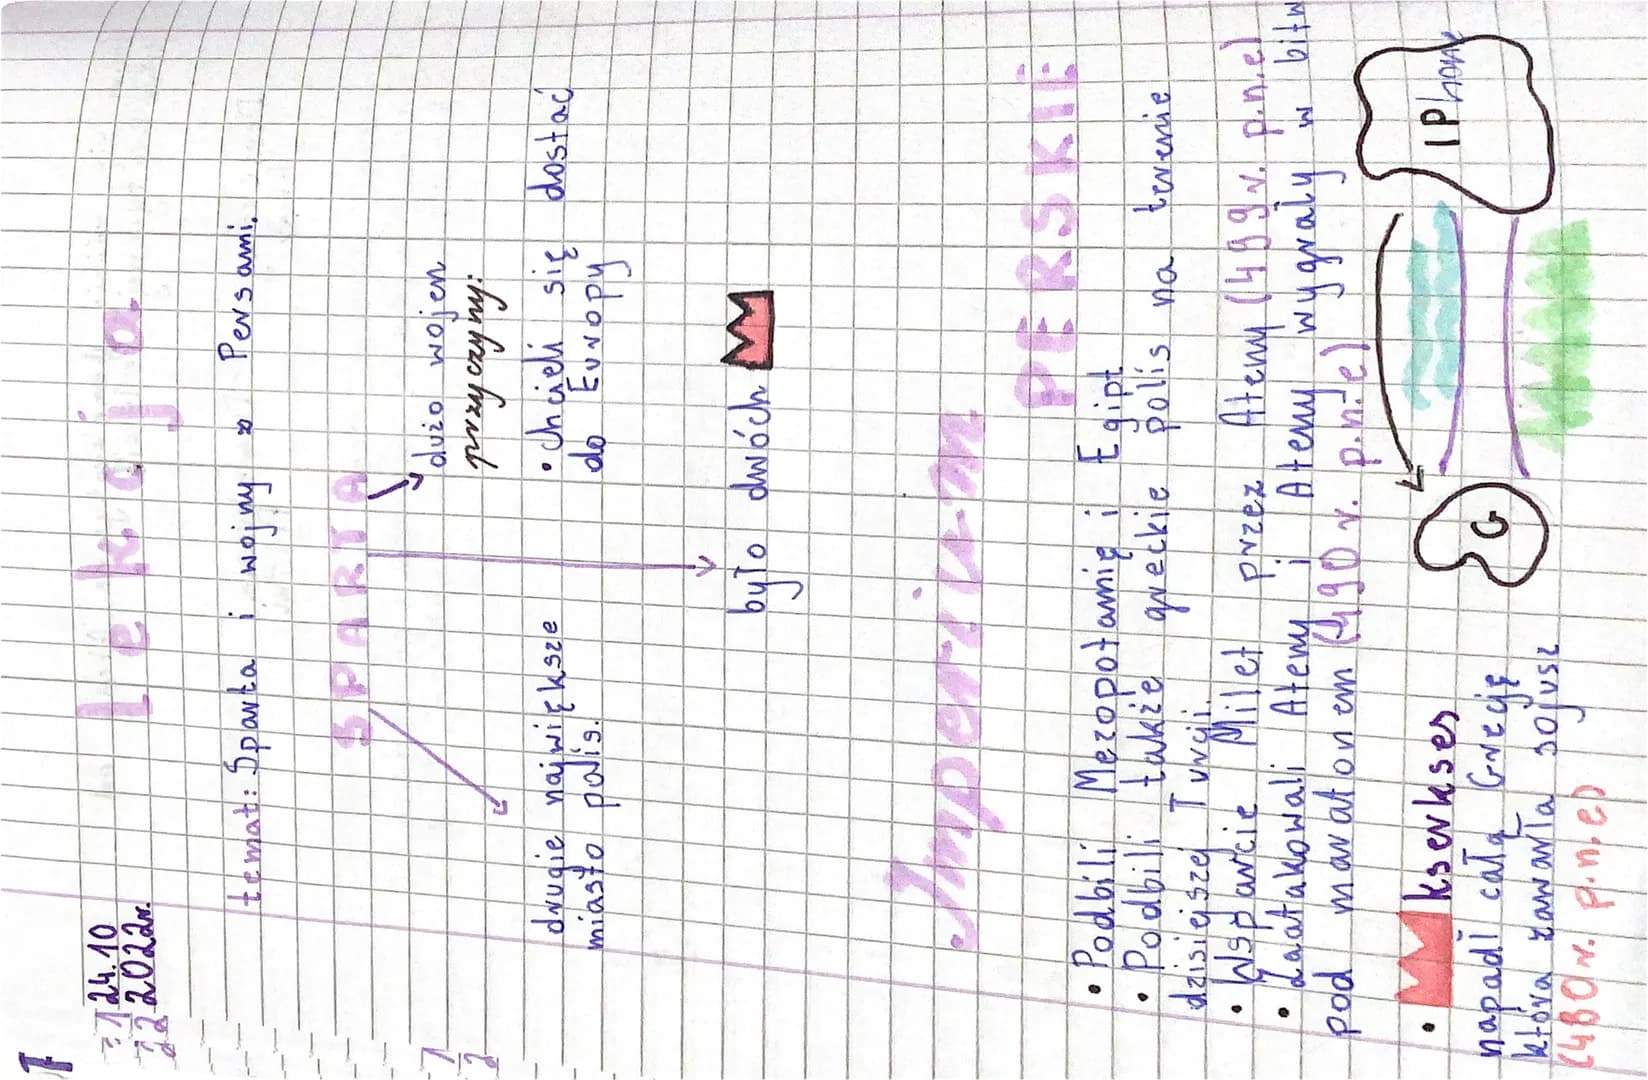 1
24.10
2022r.
Lekcja
temat: Sparta i wojny z Persami.
SPARTA
dużo wojen
przyczyny:
• Chcieli się dostać
do Europy
drugie największe
miasto polis.
było dwóch
Imperium
PERSKIE
• Podbili Mezopotamię i Egipt
• Podbili także greckie polis na terenie
dzisiejszej Turcji.
• Wsparcie Milet przez Ateny (499 r. p.n.e)
• Zaatakowali Ateny i Ateny wygrały w bitw
pod maratonem (490 r. p.n.e)
• kserkses
napadł całą Grecję
która zawarła sojusz
(480 r. p.n.e)
G
IPhone